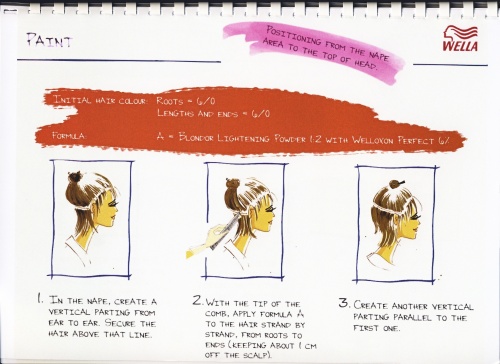 PAINT
POSITIONING FROM THE NAPE
AREA TO THE TOP OF HEAD.
WELLA
INITIAL HAIR COLOUR: ROOTS = 6/0
LENGTHS AND ENDS = 6/0
FORMULA: A = BLONDOR LIGHTENING POWDER 1:2 WITH WELLOXON PERFECT 6%
1. IN THE NAPE, CREATE A
VERTICAL PARTING FROM
EAR TO EAR. SECURE THE
HAIR ABOVE THAT LINE.
2. WITH THE TIP OF THE
COMB, APPLY FORMULA A
TO THE HAIR STRAND BY
STRAND, FROM ROOTS TO
ENDS (KEEPING ABOUT 1 CM
OFF THE SCALP).
3. CREATE ANOTHER VERTICAL
PARTING PARALLEL TO THE
FIRST ONE.